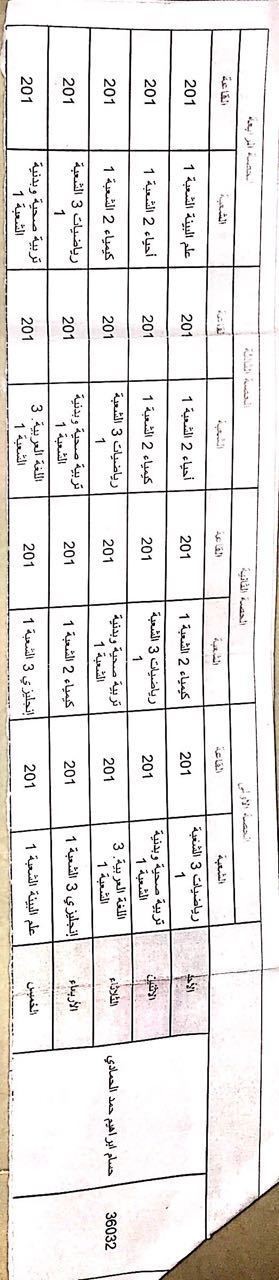 الحصة الأولى الحصة الثانية الحصة الثالثة الحصة الرابعة
الشعبة القاعة الشعبة القاعة الشعبة القاعة الشعبة القاعة
36032
حسام ابراهيم حمد الحمادي
الأحد رياضيات 3 الشعبة 1 201 كيمياء 2 الشعبة 1 201 أحياء 2 الشعبة 1 201 علم البيئة الشعبة 1 201
الاثنين تربية صحية وبدنية الشعبة 1 201 رياضيات 3 الشعبة 1 201 كيمياء 2 الشعبة 1 201 أحياء 2 الشعبة 1 201
الثلاثاء اللغة العربية. 3 الشعبة 1 201 تربية صحية وبدنية الشعبة 1 201 رياضيات 3 الشعبة 1 201 كيمياء 2 الشعبة 1 201
الأربعاء إنجليزي 3 الشعبة 1 201 كيمياء 2 الشعبة 1 201 تربية صحية وبدنية الشعبة 1 201 رياضيات 3 الشعبة 1 201
الخميس علم البيئة الشعبة 1 201 إنجليزي 3 الشعبة 1 201 اللغة العربية. 3 الشعبة 1 201 تربية صحية وبدنية الشعبة 1 201